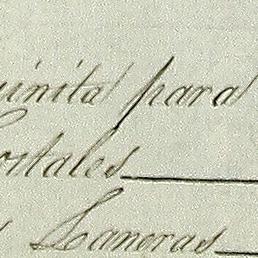 uinita para
ostales
s Laneras